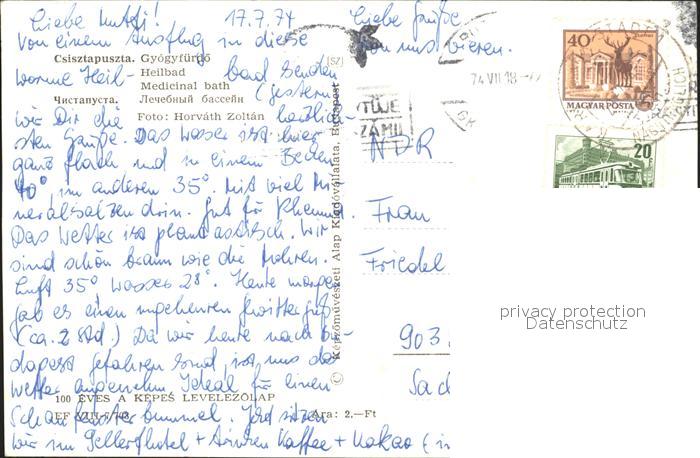 Liebe Mutti! 17.7.74
Von einem Ausflug in diese
Csisztapuszta. Gyógyfürdő
warme Heil- bad senden
Heilbad
Medicinal bath
(gestern)
Чистапуста. Лечебный бассейн
wir Dir die herzlich-
Foto: Horváth Zoltán
sten Grüße. Das Wasser ist hier
ganz flach und in einem Becken
40°, im anderen 35°. Mit viel Mi
neralsalzen drin. Gut für Rheuma.
Das Wetter ist phantastisch. Wir
sind schön braun wie die Mohren.
Luft 35° Wasser 28°. Heute morgen
gab es einen ungeheuren Gewitterguß
(ca. 2 Std.) Da wir heute nach Bu-
dapest gefahren sind, ist uns das
Wetter angenehm. Ideal für einen
100 ÉVES A KÉPES LEVELEZŐLAP
Schaufensterbummel. Jetzt sitzen
Ára: 2,—Ft
wir im Gellerthotel + trinken Kaffee + Kakao (i
Képzőművészeti Alap Kiadóvállalata, Budapest
[SZ]
Liebe Grüße
von uns beiden.
74 VII 18
40f
MAGYAR POSTA
20f
NDR
Frau
Friedel
903
Sac
privacy protection
Datenschutz